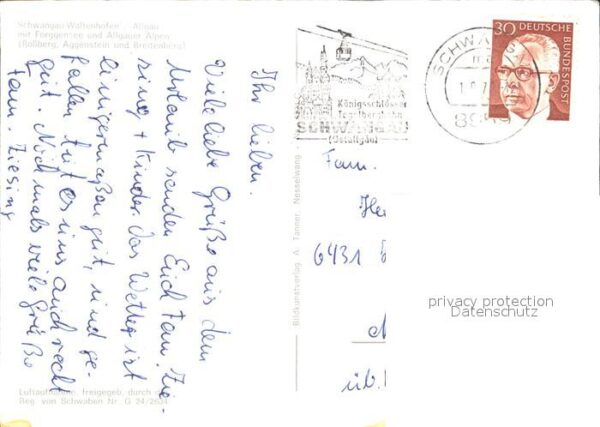 Schwangau-Waltenhofen - Allgäu
mit Forggensee und Allgäuer Alpen
(Roßberg, Aggenstein und Breitenberg)
Ihr lieben.
Viele liebe Grüße aus dem
Urlaub senden Euch Fam. Zie-
sing + Kinder. das Wetter ist
einigermaßen gut, und ge-
fallen tut es uns auch recht
gut. Nochmals viele Grüße
Fam. Ziesing
Luftaufnahme, freigegeben durch
Reg. von Schwaben Nr. G 24/2604
Bildkunstverlag A. Tanner, Nesselwang
Königsschlösser
Tegelbergbahn
SCHWANGAU
(Ostallgäu)
SCHWANGAU
30 DEUTSCHE
BUNDESPOST
Fam.
6431
üb.
privacy protection
Datenschutz